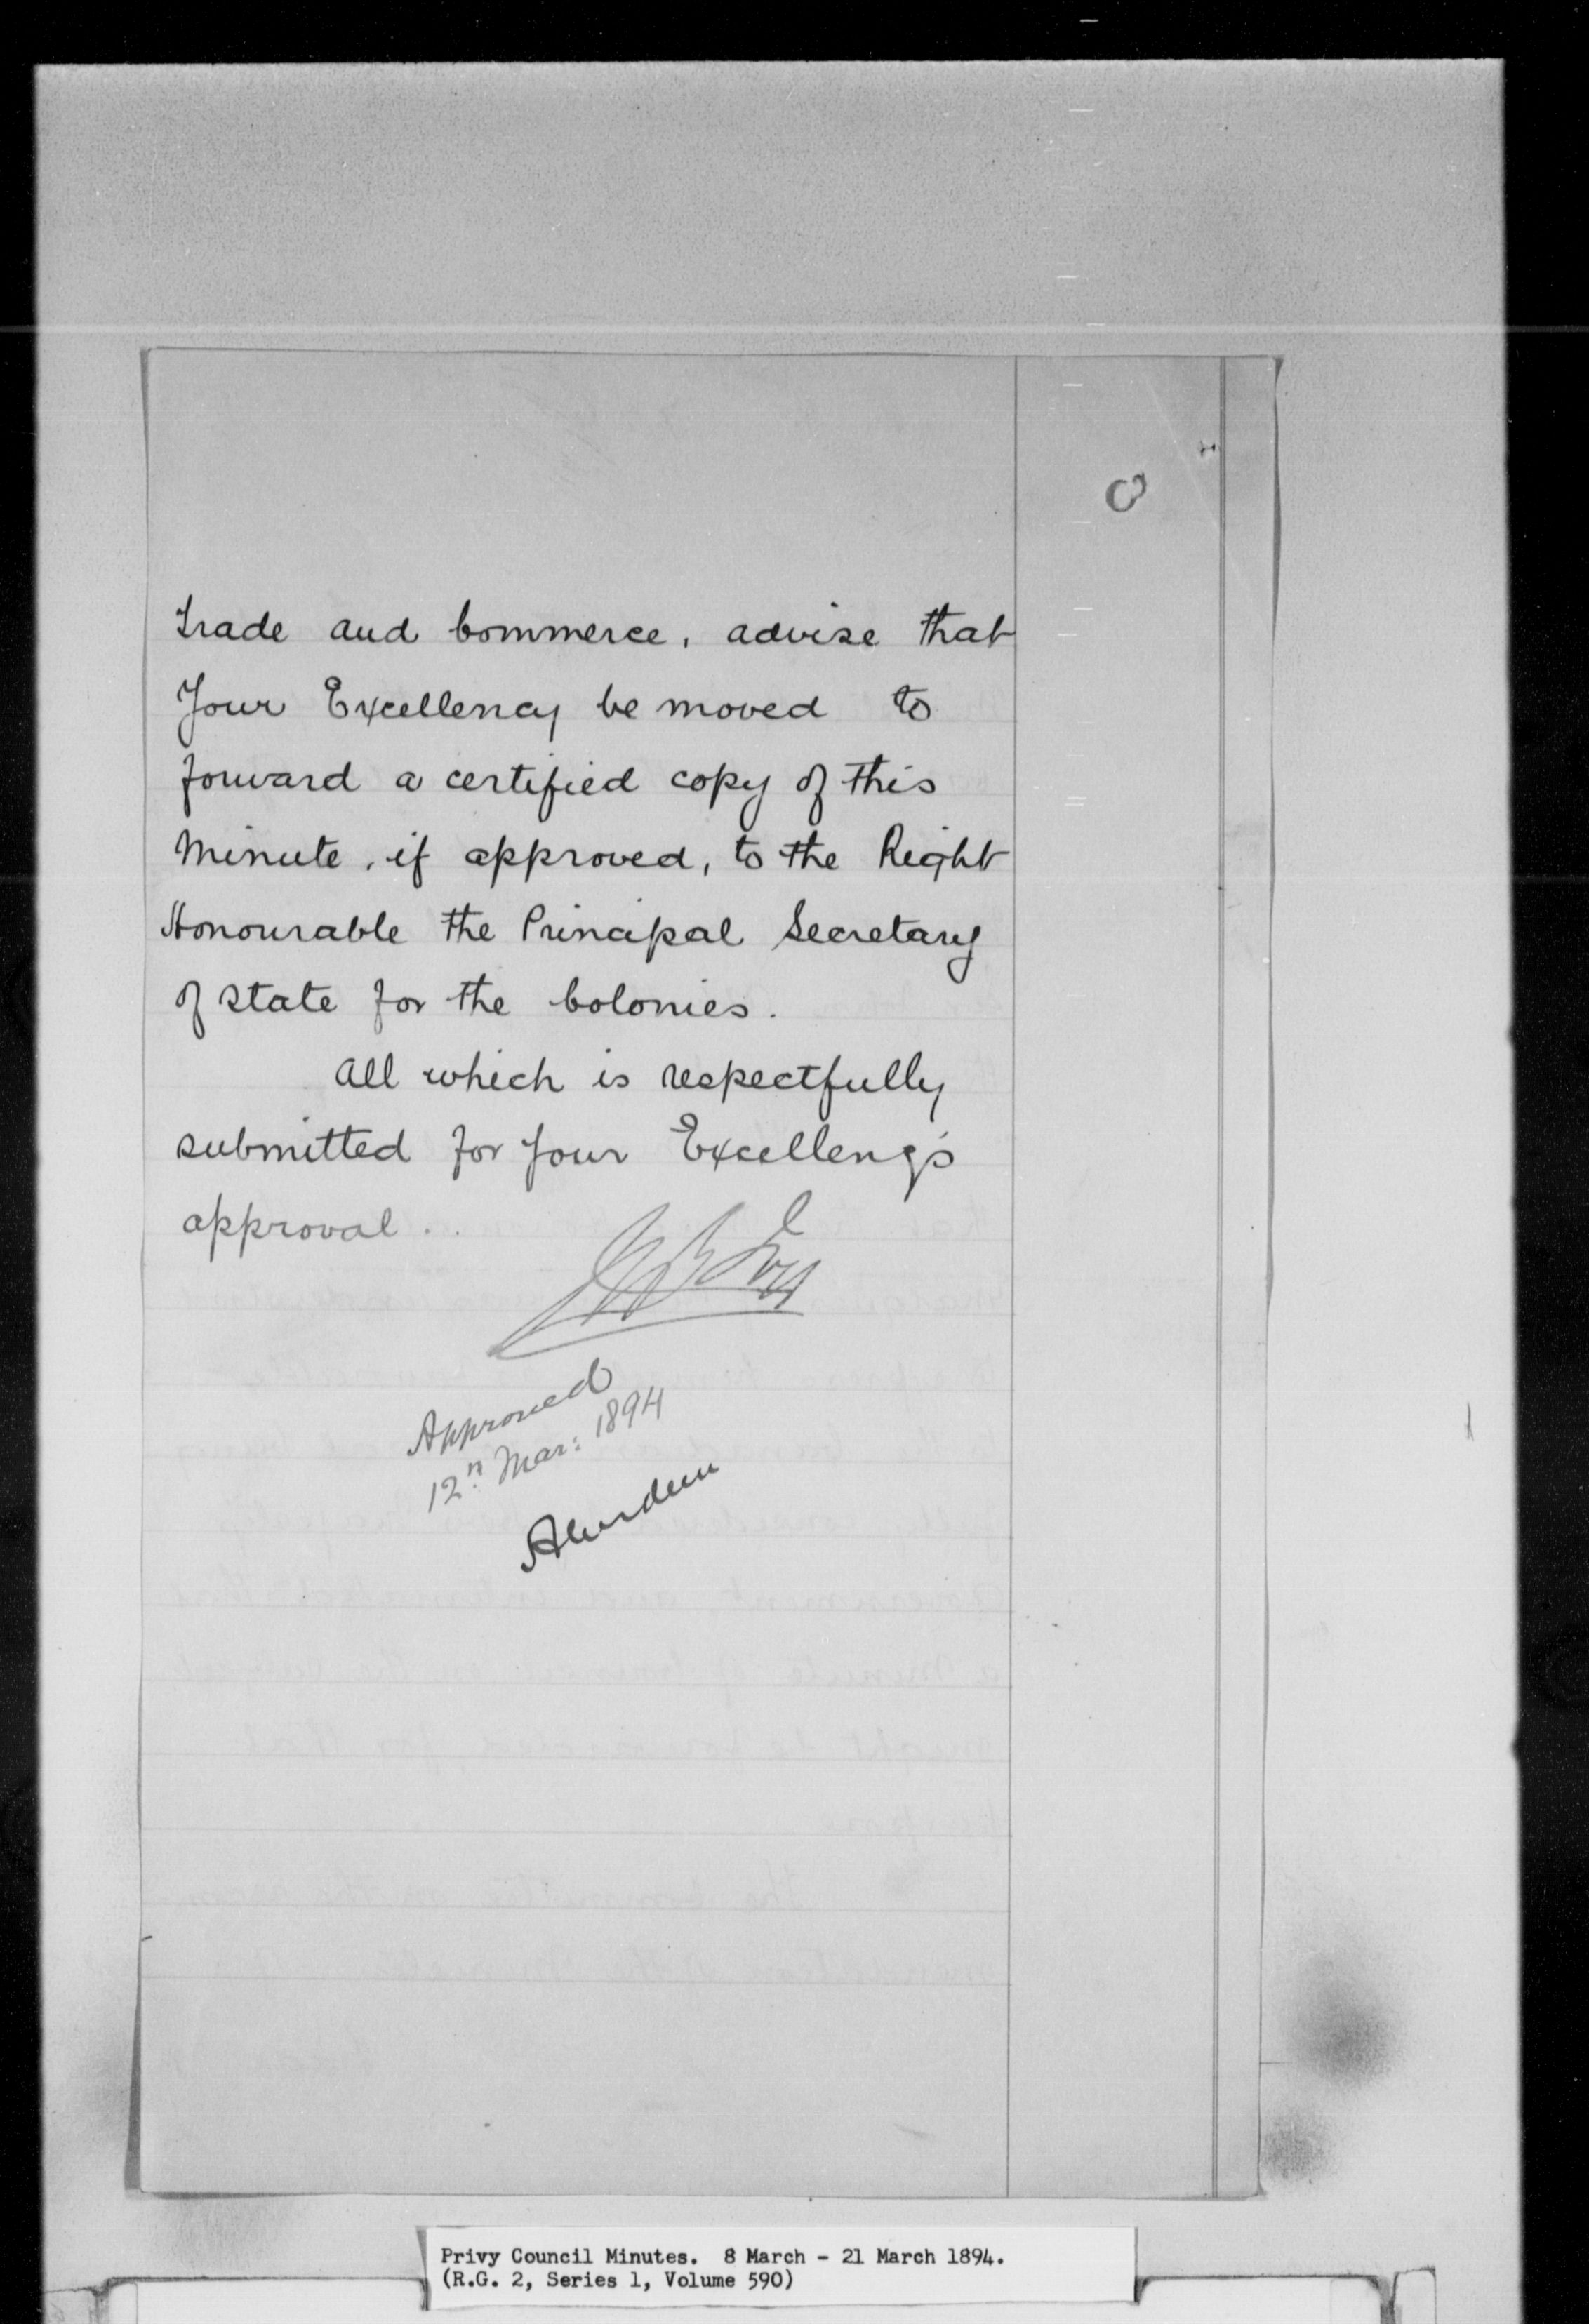 Trade and Commerce, advise that
Your Excellency be moved to
forward a certified copy of this
Minute, if approved, to the Right
Honourable the Principal Secretary
of State for the Colonies.
All which is respectfully
submitted for Your Excellency's
approval.
Approved
12th Mar: 1894
Aberdeen
Privy Council Minutes. 8 March - 21 March 1894.
(R.G. 2, Series 1, Volume 590)